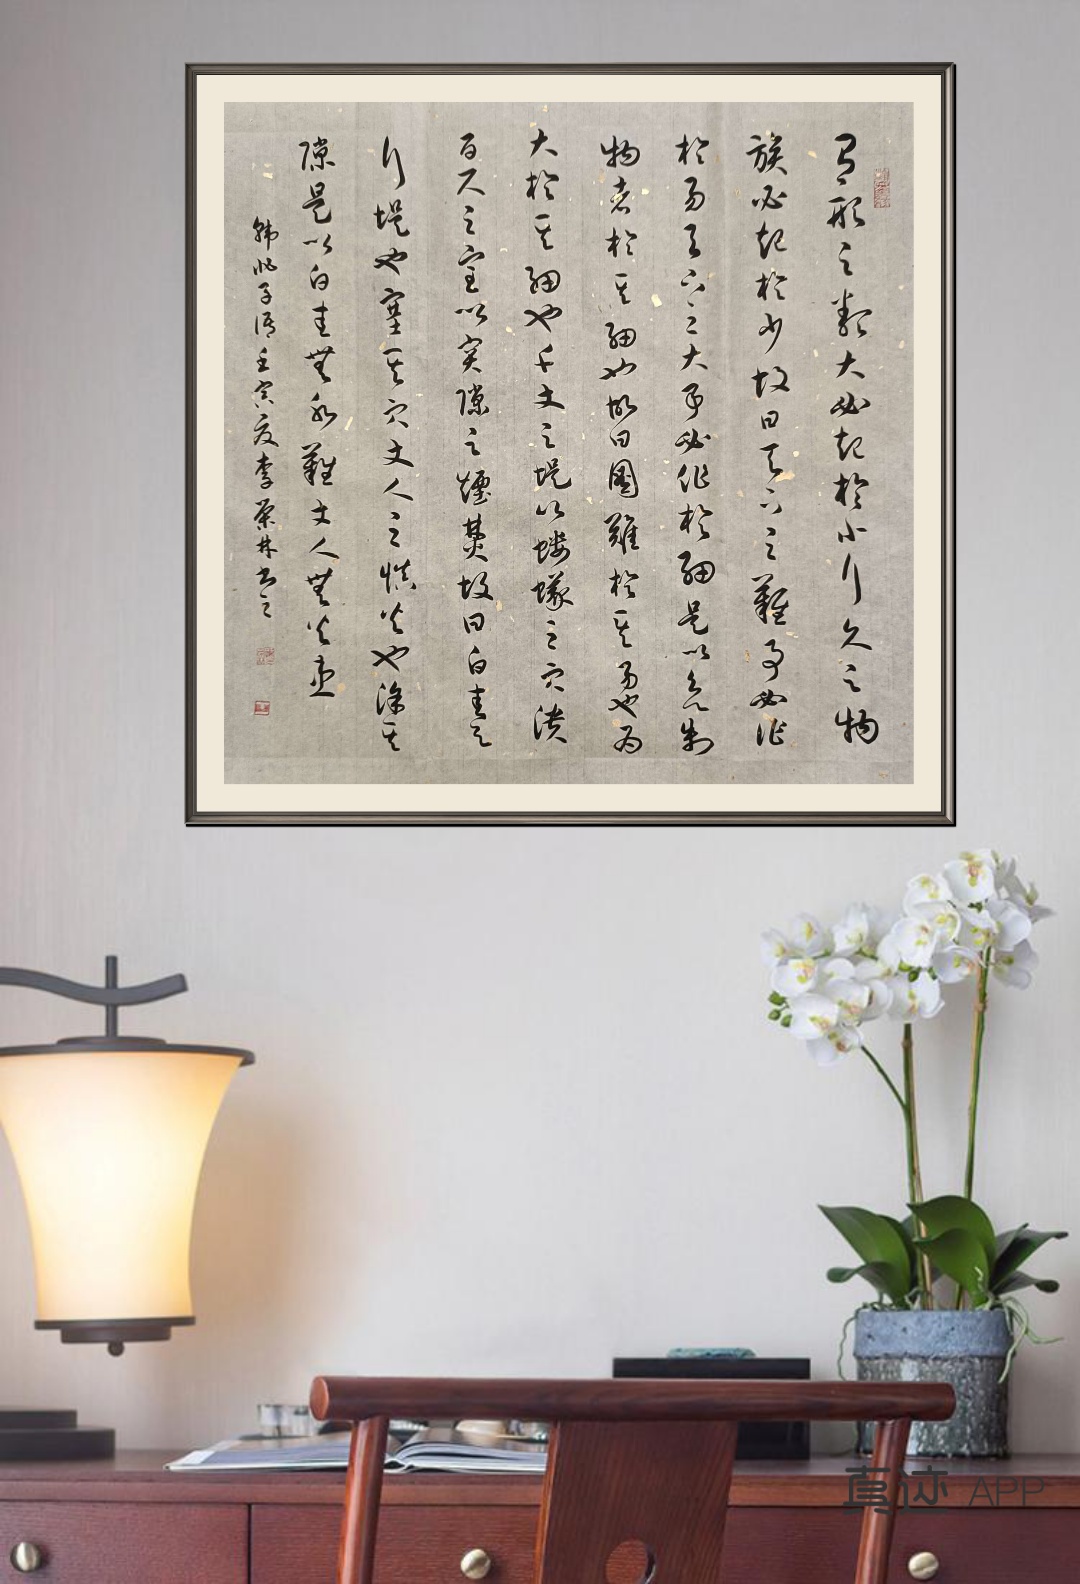 有形之類大必起於小行久之物
族必起於少故曰天下之難事必作
於易天下之大事必作於細是以欲制
物者於其細也故曰圖難於其易也為
大於其細也千丈之堤以螻蟻之穴潰
百尺之室以突隙之煙焚故曰白圭之
行堤也塞其穴丈人之慎火也塗其
隙是以白圭無水難丈人無火患
韓非子語壬寅夏李榮林书之
真迹 APP